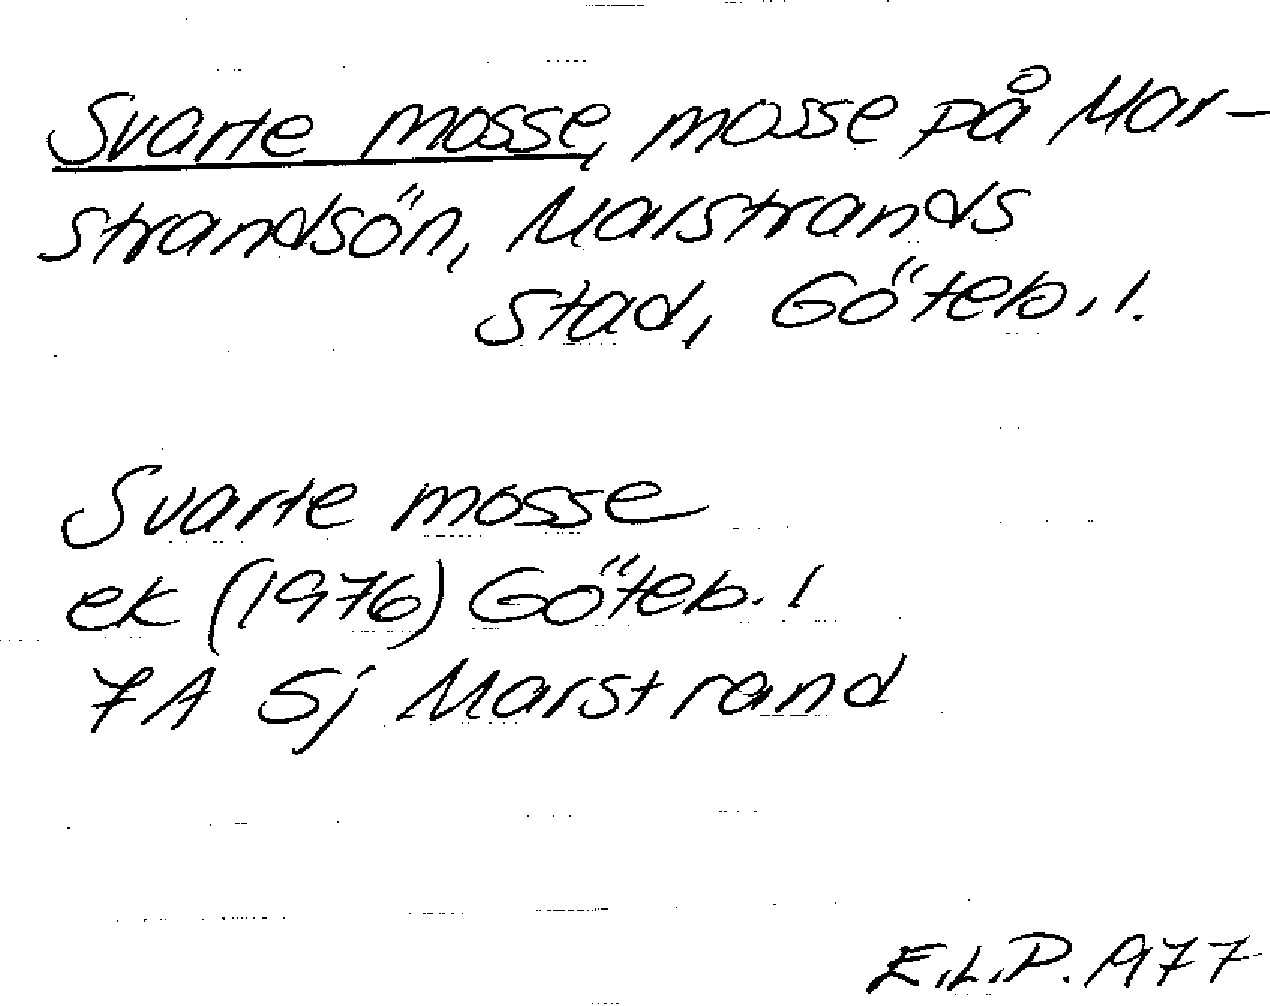 Svarte mosse, mosse på Mar-
strandsön, Marstrands
stad, Göteb. l.
Svarte mosse
ek (1976) Göteb. l
7A Sj Marstrand
E.L.P. 1977